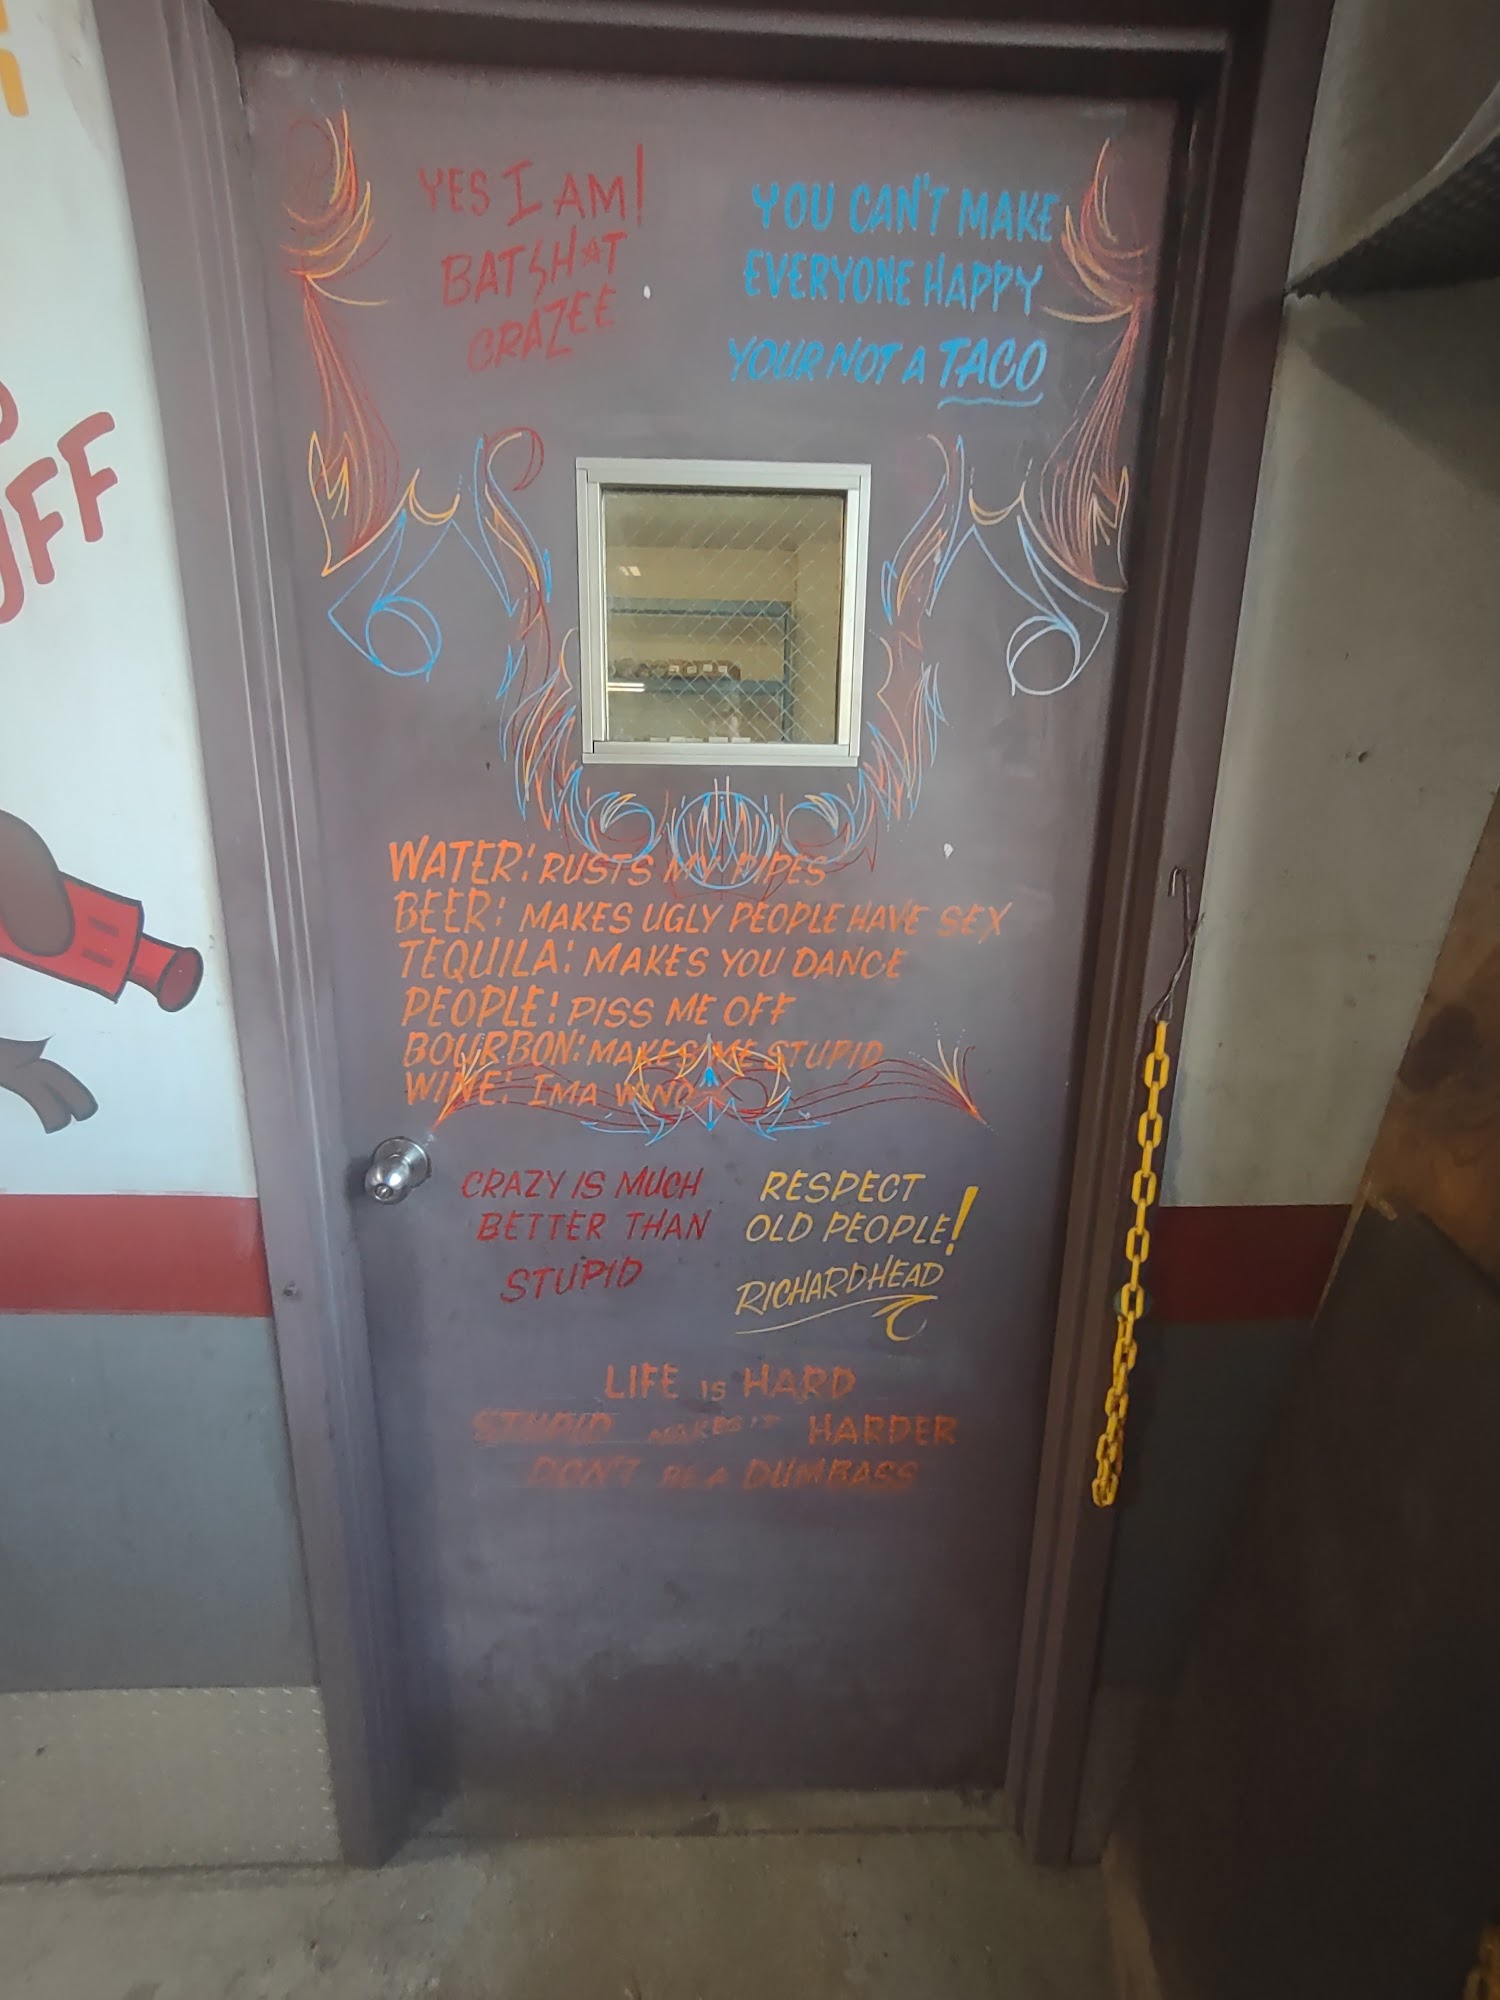 YES I AM!
BATSH★T
CRAZEE
YOU CAN'T MAKE
EVERYONE HAPPY
YOUR NOT A TACO
UFF
WATER: RUSTS MY PIPES
BEER: MAKES UGLY PEOPLE HAVE SEX
TEQUILA: MAKES YOU DANCE
PEOPLE: PISS ME OFF
BOURBON: MAKES ME STUPID
WINE: IMA WINO
CRAZY IS MUCH
BETTER THAN
STUPID
RESPECT
OLD PEOPLE!
RICHARDHEAD
LIFE IS HARD
STUPID MAKES IT HARDER
DON'T BE A DUMBASS